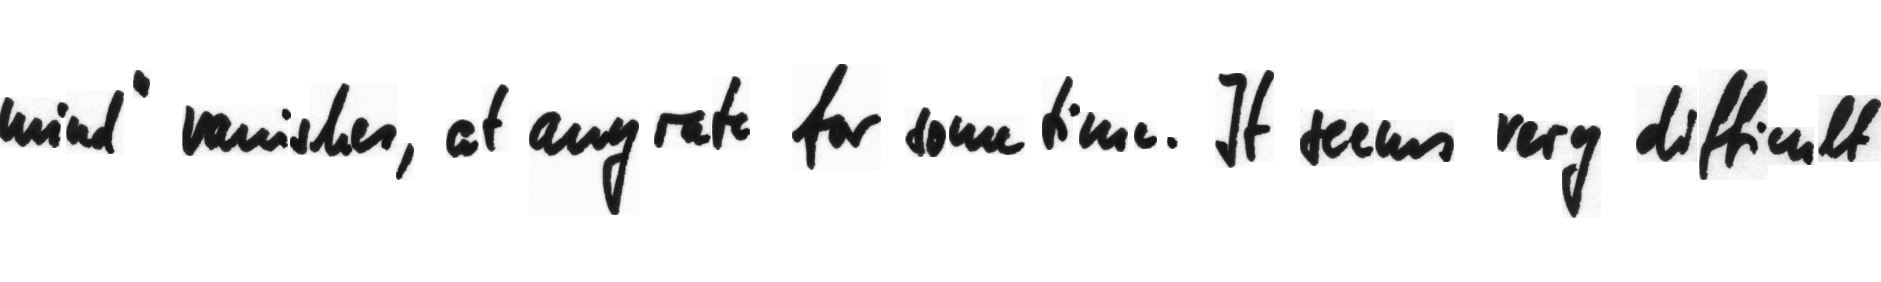 mind" vanishes, at any rate for some time. It seems very difficult